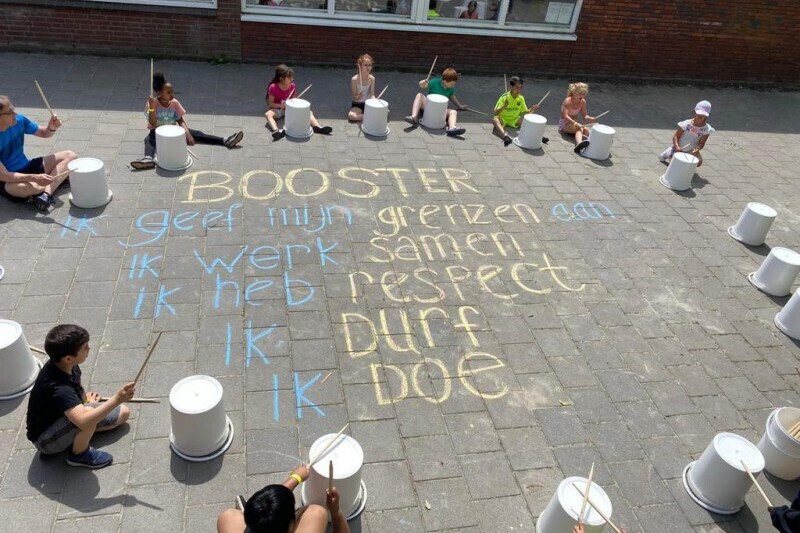 BOOSTER
ik geef mijn grenzen aan
ik werk samen
ik heb respect
ik Durf
ik DOE